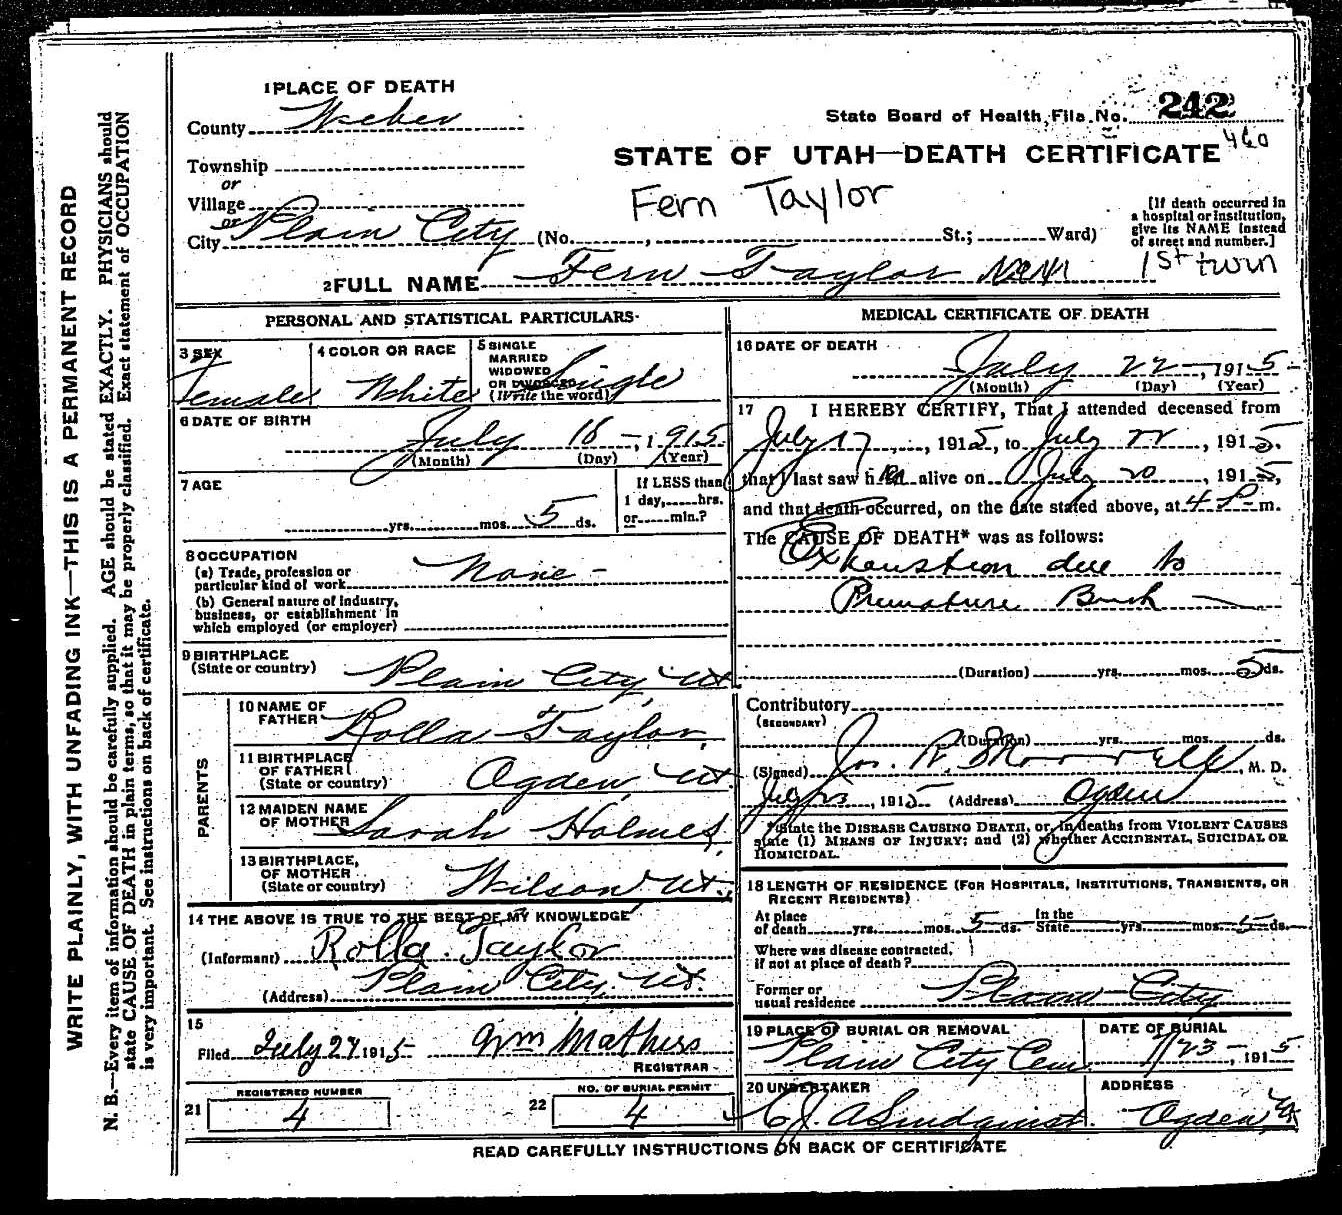 1 PLACE OF DEATH
County Weber
State Board of Health, File No. 242
460
Township
STATE OF UTAH—DEATH CERTIFICATE
or
Village
Fern Taylor
or
City Plain City (No. , St.; Ward)
[If death occurred in
a hospital or institution,
give its NAME instead
of street and number.]
2 FULL NAME Fern Taylor 1st twin
PERSONAL AND STATISTICAL PARTICULARS
3 SEX
Female
4 COLOR OR RACE
White
5 SINGLE
MARRIED
WIDOWED
OR DIVORCED
(Write the word)
Single
6 DATE OF BIRTH
July 18 — , 1915
(Month) (Day) (Year)
7 AGE
yrs. mos. 5 ds.
If LESS than
1 day, hrs.
or min.?
8 OCCUPATION
(a) Trade, profession or
particular kind of work None -
(b) General nature of industry,
business, or establishment in
which employed (or employer)
9 BIRTHPLACE
(State or country) Plain City, Ut
PARENTS
10 NAME OF
FATHER Rolla Taylor,
11 BIRTHPLACE
OF FATHER
(State or country) Ogden, Ut
12 MAIDEN NAME
OF MOTHER Sarah Holmes,
13 BIRTHPLACE,
OF MOTHER
(State or country) Wilson Ut.,
14 THE ABOVE IS TRUE TO THE BEST OF MY KNOWLEDGE
(Informant) Rolla Taylor
(Address) Plain City, Ut.
15
Filed July 27 1915 Wm Mathers
REGISTRAR
21 REGISTERED NUMBER
4
22 NO. OF BURIAL PERMIT
4
MEDICAL CERTIFICATE OF DEATH
16 DATE OF DEATH
July 22 — , 1915
(Month) (Day) (Year)
17 I HEREBY CERTIFY, That I attended deceased from
July 17 , 1915, to July 22 , 1915.
that I last saw her alive on July 20 , 1915,
and that death occurred, on the date stated above, at 4 P m.
The CAUSE OF DEATH* was as follows:
Exhaustion due to
Premature Birth
(Duration) yrs. mos. 5 ds.
Contributory
(SECONDARY)
(Duration) yrs. mos. ds.
(Signed) Jos. R. , M. D.
July 23 , 1915 (Address) Ogden
*State the DISEASE CAUSING DEATH, or, in deaths from VIOLENT CAUSES
state (1) MEANS OF INJURY; and (2) whether ACCIDENTAL, SUICIDAL OR
HOMICIDAL.
18 LENGTH OF RESIDENCE (FOR HOSPITALS, INSTITUTIONS, TRANSIENTS, OR
RECENT RESIDENTS)
At place
of death yrs. mos. 5 ds. In the
State yrs. mos. 5 ds.
Where was disease contracted,
if not at place of death?
Former or
usual residence Plain City
19 PLACE OF BURIAL OR REMOVAL
Plain City Cem
DATE OF BURIAL
7/23 - , 1915
20 UNDERTAKER
C. J. A. Lindquist.
ADDRESS
Ogden, Ut
READ CAREFULLY INSTRUCTIONS ON BACK OF CERTIFICATE
WRITE PLAINLY, WITH UNFADING INK—THIS IS A PERMANENT RECORD
N. B.—Every item of information should be carefully supplied. AGE should be stated EXACTLY. PHYSICIANS should
state CAUSE OF DEATH in plain terms, so that it may be properly classified. Exact statement of OCCUPATION
is very important. See instructions on back of certificate.